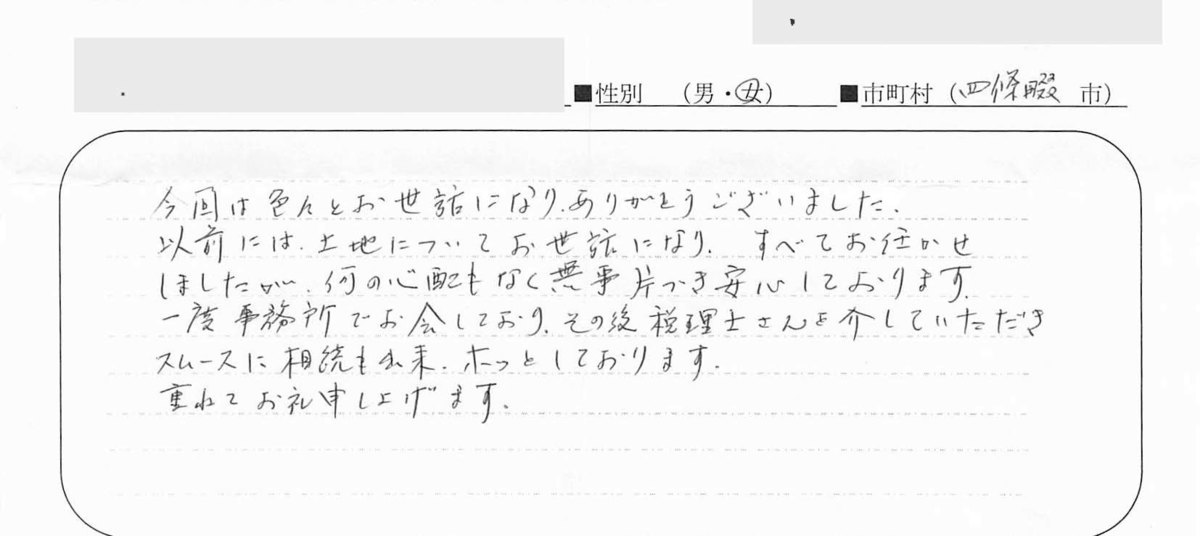 ■性別 （男・女） ■市町村（四條畷 市）
今回は色々とお世話になり、ありがとうございました、
以前には、土地についてお世話になり、すべてお任かせ
しましたが、何の心配もなく無事片づき安心しております。
一度事務所でお会しており、その後税理士さんを介していただき
スムースに相続も出来、ホッとしております。
重ねてお礼申し上げます。